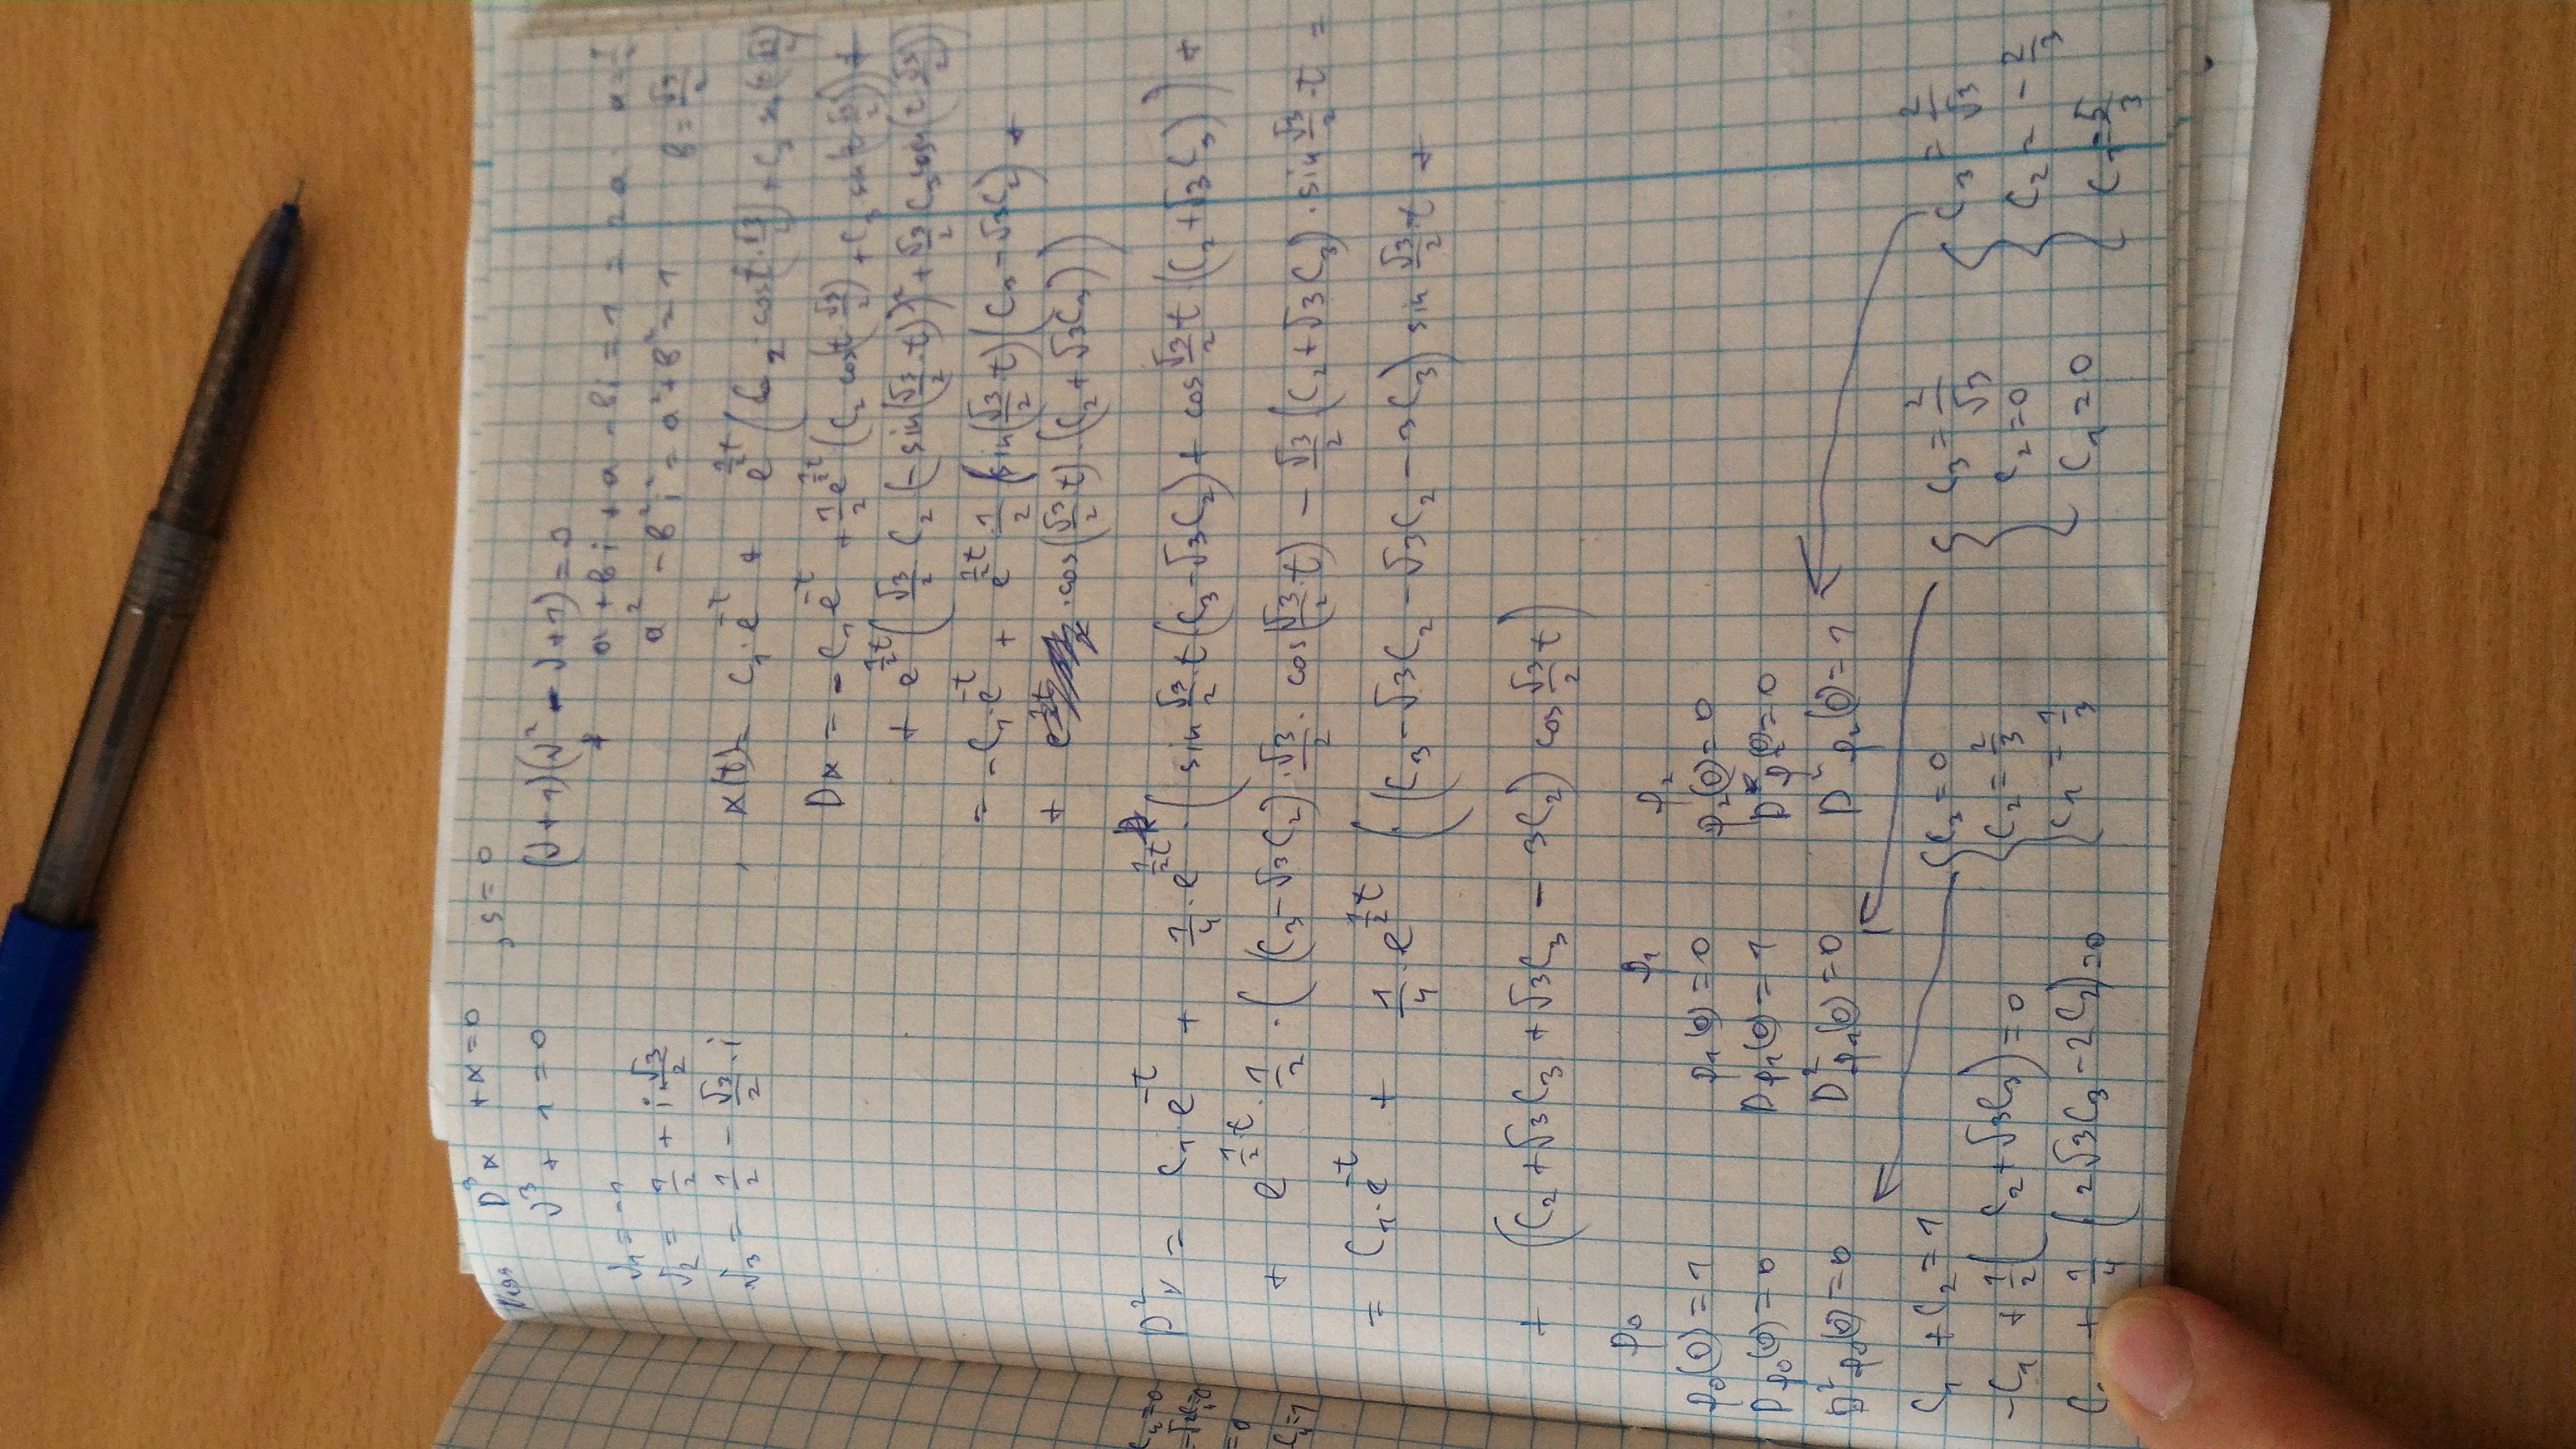 D³x + x = 0 , s = 0
λ³ + 1 = 0 (λ + 1)(λ² - λ + 1) = 0
a + bi + a - bi = 1 = 2a
λ₁ = -1
a² - b²i² = a² + b² = 1 b = √3/2
λ₂ = 1/2 + i √3/2
λ₃ = 1/2 - √3/2 · i
x(t) = C₁·e^(-t) + e^(1/2 t) (C₂ cos(t·√3/2) + C₃ sin(t √3/2))
Dx = -C₁e^(-t) + 1/2 e^(1/2 t) (C₂ cos(t √3/2) + C₃ sin(t √3/2)) +
+ e^(1/2 t) (√3/2 C₂ (-sin(√3/2 · t)) + √3/2 C₃ cos(t·√3/2))
= -C₁·e^(-t) + e^(1/2 t) · 1/2 (sin(√3/2 · t)(C₃ - √3C₂) +
+ · cos(√3/2 t) · (C₂ + √3C₃))
D²x = C₁·e^(-t) + 1/4 · e^(1/2 t) · (sin √3/2 · t (C₃ - √3C₂) + cos √3/2 t · (C₂ + √3C₃)) +
+ e^(1/2 · t) · 1/2 · ((C₃ - √3C₂) · √3/2 · cos(√3/2 · t) - √3/2 (C₂ + √3C₃) · sin √3/2 · t =
= C₁·e^(-t) + 1/4 · e^(1/2 t) ((C₃ - √3C₂ - √3C₂ - 3C₃) sin √3/2 · t +
+ (C₂ + √3C₃ + √3C₃ - 3C₂) cos √3/2 t)
p₀ p₁ p₂
p₀(0) = 1 p₁(0) = 0 p₂(0) = 0
Dp₀(0) = 0 Dp₁(0) = 1 Dp₂(0) = 0
D²p₀(0) = 0 D²p₁(0) = 0 D²p₂(0) = 1
C₁ + C₂ = 1 { C₃ = 0 { C₃ = 2/√3 { C₃ = 2/√3
-C₁ + 1/2 (C₂ + √3C₃) = 0 C₂ = 2/3 C₂ = 0 C₂ = - 2/3
+ 1/4 (2√3C₃ - 2C₂) = 0 C₁ = 1/3 C₁ = 0 C₁ = 5/3